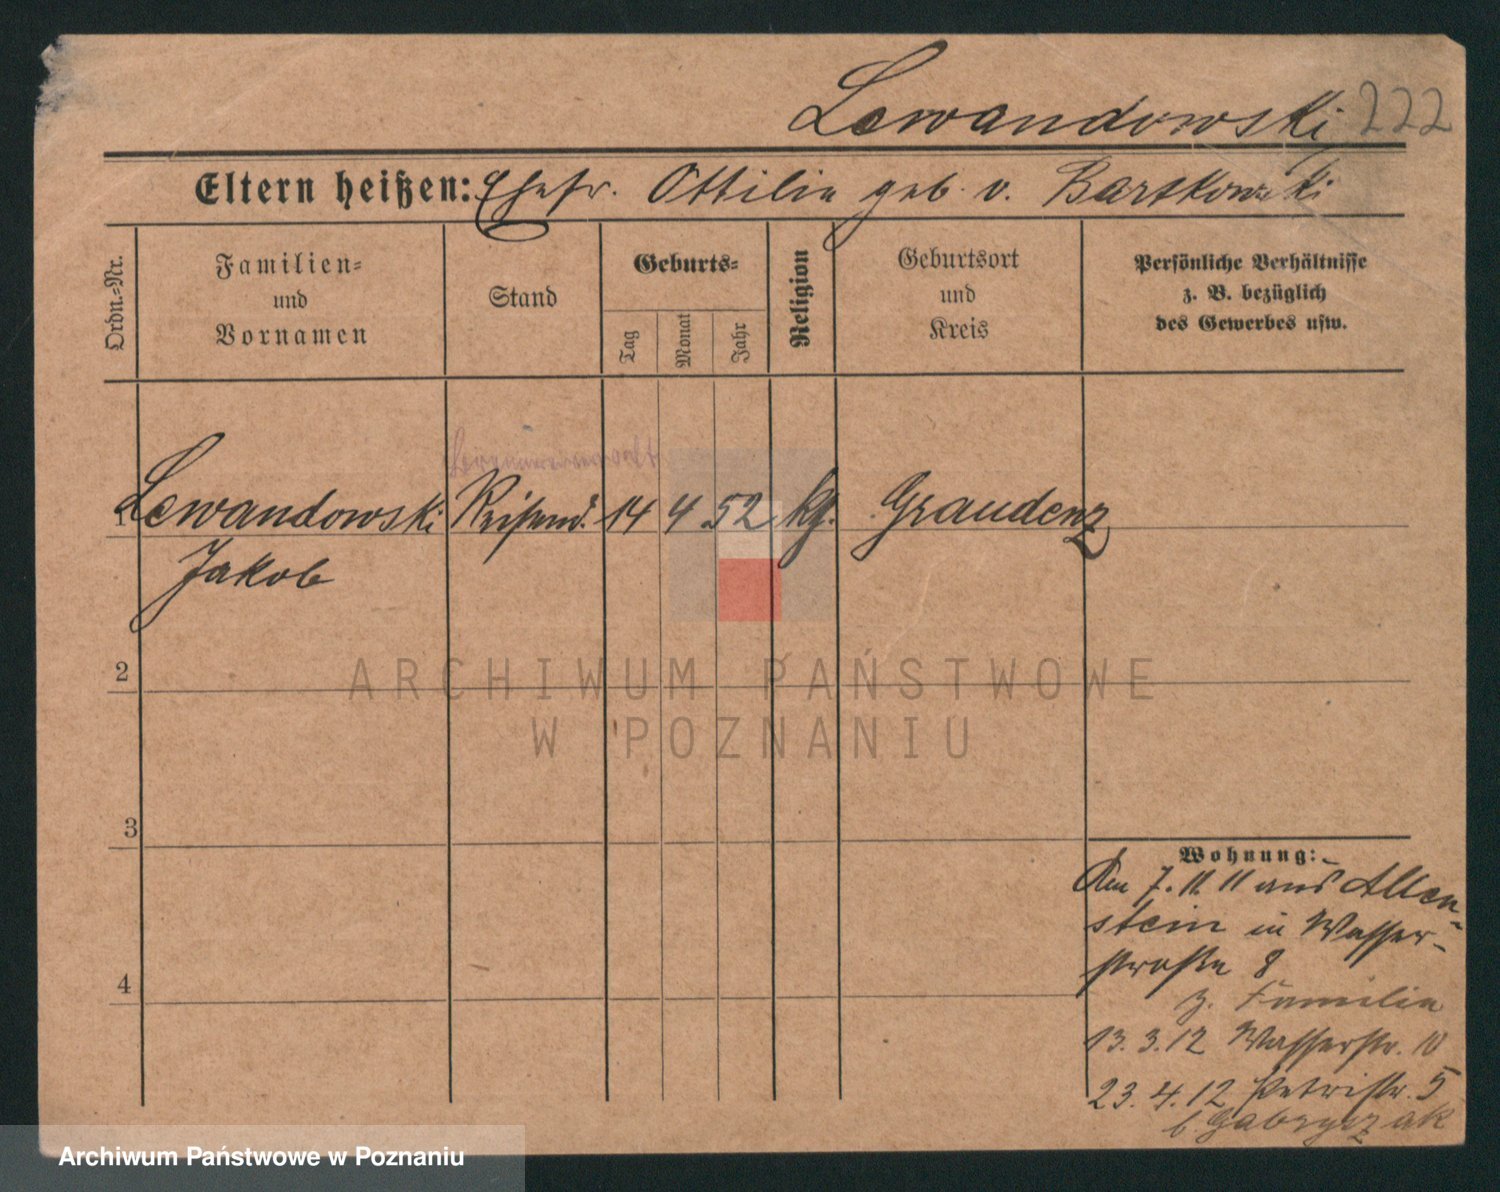 Lewandowski 222
Eltern heißen: Ehefr. Ottilie geb. v. Bartkowski
Ordn.-Nr.
Familien-
und
Vornamen
Stand
Geburts-
Tag
Monat
Jahr
Religion
Geburtsort
und
Kreis
Persönliche Verhältnisse
z. B. bezüglich
des Gewerbes usw.
1 Lewandowski 14 4 52 kg. Graudenz
Jakob
2
3
4
Wohnung:
Am 7. 11. 11 aus Allen-
stein in Wasser-
straße 8
z. Familie
13. 3. 12 Wasserstr. 10
23. 4. 12 Petristr. 5
b Gabryszak
ARCHIWUM PAŃSTWOWE
W POZNANIU
Archiwum Państwowe w Poznaniu